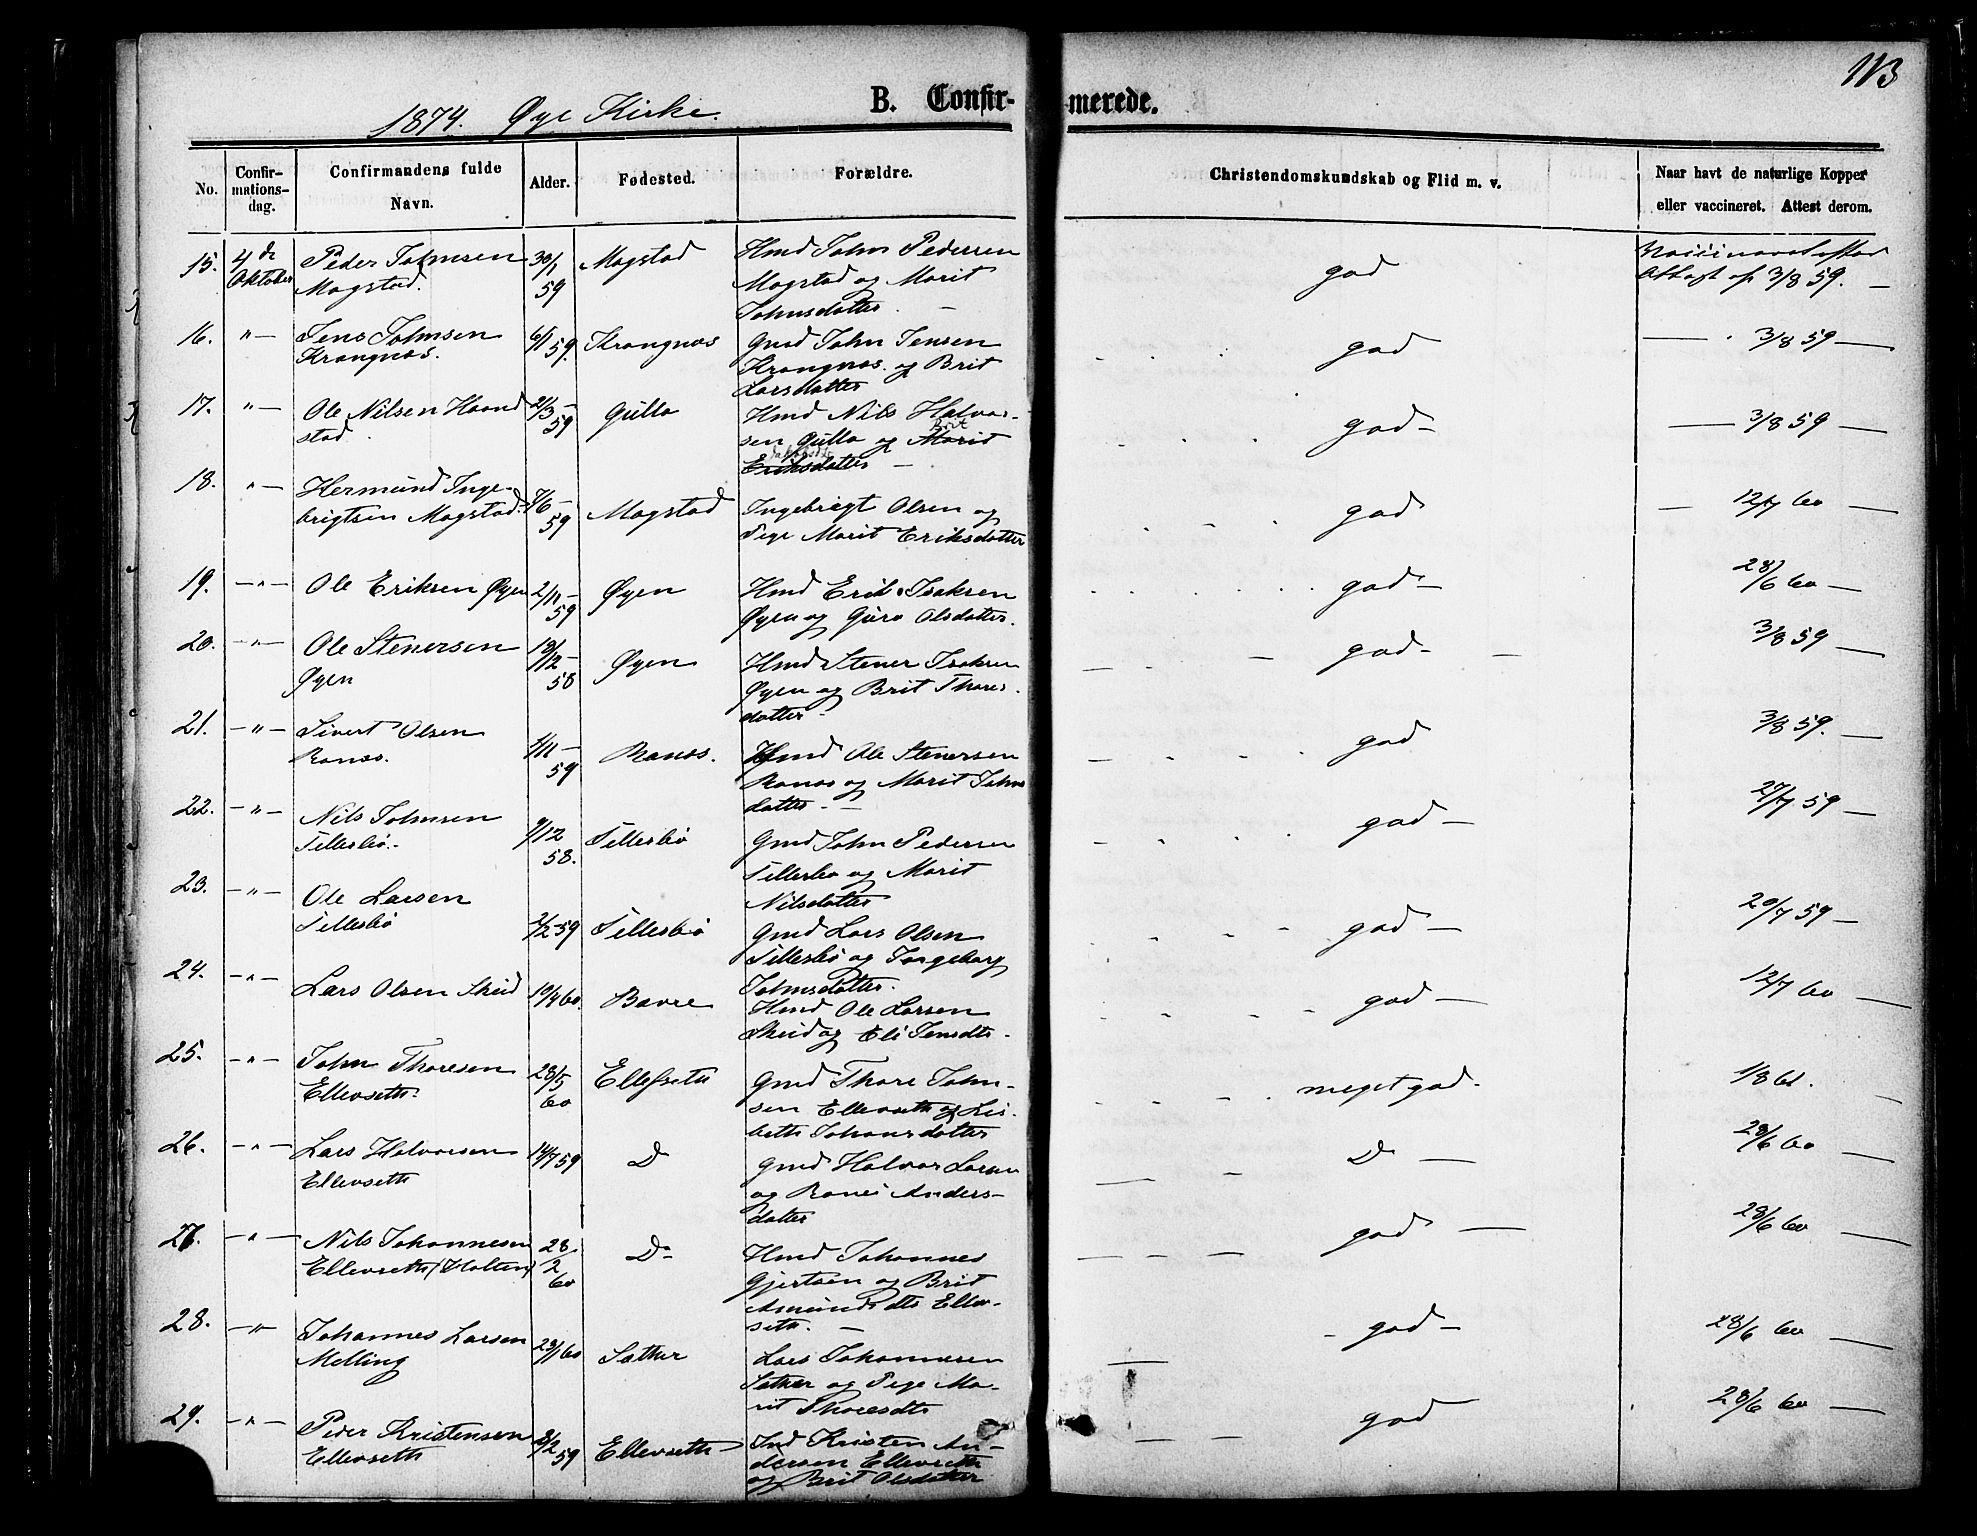 113
1874. Øye Kirke.
B. Confirmerede.
No. | Confirmationsdag. | Confirmandens fulde Navn. | Alder. | Fødested. | Forældre. | Christendomskundskab og Flid m. v. | Naar havt de naturlige Kopper eller vaccineret. Attest derom.
15. 4de Oktober | Peder Johnsen Mogstad. | 30/1 59 | Mogstad | Hmd John Pedersen Mogstad og Marit Johnsdatter. | god | 3/8 59.
16. "— | Jens Johnsen Krangnæs. | 6/1 59. | Krangnæs | Gmd John Jensen Krangnæs. og Brit Larsdatter | god | 3/8 59 —
17. "— | Ole Nilsen Haandstad. | 2/3 – 59 | Gulla | Hmd Nils Halvorsen Gulla og Brit Marit Eriksdatter — | god – | 3/8 59 —
18. "— | Hermund Ingebrigtsen Mogstad. | 59 | Mogstad | Ingebrigt Olsen og Pige Marit Eriksdatter | god | 12/7 60 —
19. —"— | Ole Eriksen Øyen | 2/11 – 59 | Øyen | Hmd Erik Isaksen Øyen og Guro Olsdatter. | god – | 28/6 60 —
20. —"— | Ole Stenersen Øyen | 18/12 – 58 | Øyen | Hmd Stener Isaksen Øyen og Brit Thoresdatter – | god – | 3/8 59 —
21. —"— | Sivert Olsen Ranæs. | 1/11 – 59 | Ranæs. | Hmd Ole Stenersen Ranæs og Marit Johnsdatter – | god | 3/8 59. —
22. —"— | Nils Johnsen Tellesbø.– | 9/12 58. | Tellesbø | Gmd John Pedersen Tellesbø og Marit Nilsdatter | god – | 27/7 59 —
23. —"— | Ole Larsen Tellesbø | 2/2 59 | Tellesbø | Gmd Lars Olsen Tellesbø og Ingeborg Johnsdatter. | god – | 20/7 59 –
24. —"— | Lars Olsen Skeid | 10/4 60. | Bævre | Hmd Ole Larsen Skeid og Eli Jensdtr. | god — | 12/7 60 —
25. —"— | John Thoresen Ellevseth. | 28/5 60 | Ellefseth | Gmd Thore Johnsen Ellevseth og Lisbeth Johansdatter | meget god. | 1/8 61.
26. —"— | Lars Halvorsen Ellevseth | 14/7 59 | D | Gmd Halvor Larsen og Ranei Andersdatter | D — | 28/6 60 —
27. —"— | Nils Johannesen Ellevseth (Holten) | 28/2 60 | D– | Hmd Johannes Gjertsen og Brit Amundsdtr Ellevseth. — | god — | 28/6 60 —
28. —"— | Johannes Larsen Melling | 29/1 60 | Sæther | Lars Johannesen Sæther og Pige Marit Thoresdtr | god – | 28/6 60 —
29. —"— | Peder Kristensen Ellevseth | 8/2 59 | Ellevseth | Ind Kristen Andersen Ellevseth og Brit Olsdatter | god | 28/6 60 —